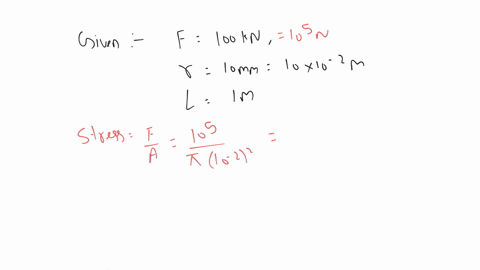 Given :- F = 100 kN, = 10⁵ N
r = 10mm = 10 × 10⁻² M
L = 1M
Stress: F/A = 10⁵/π(10⁻²)² =